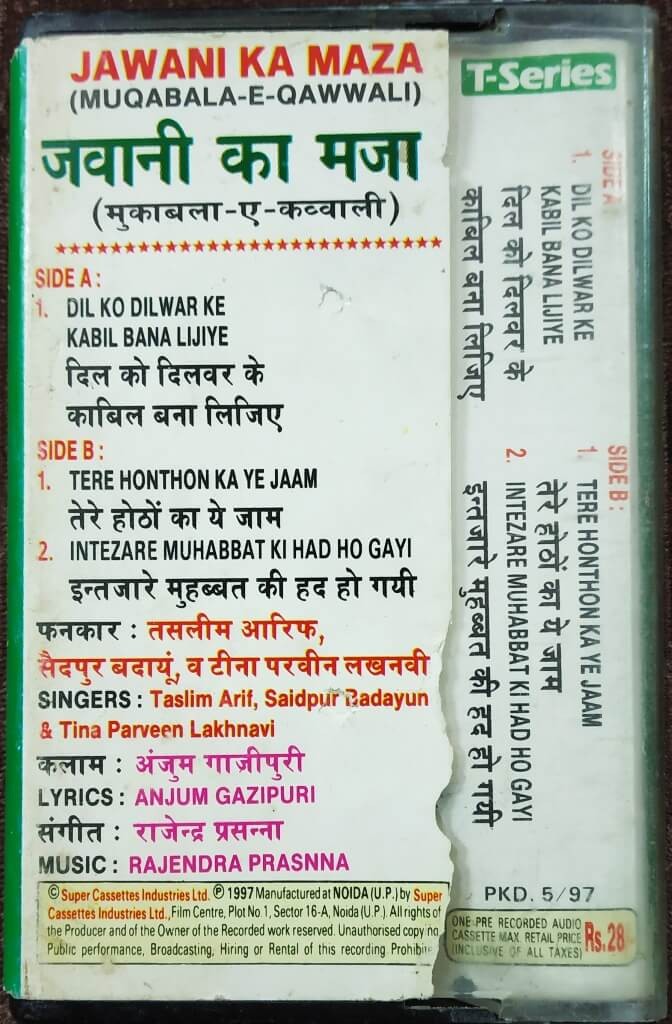 JAWANI KA MAZA
(MUQABALA-E-QAWWALI)
जवानी का मजा
(मुकाबला-ए-कव्वाली)
SIDE A :
1. DIL KO DILWAR KE
KABIL BANA LIJIYE
दिल को दिलवर के
काबिल बना लिजिए
SIDE B :
1. TERE HONTHON KA YE JAAM
तेरे होठों का ये जाम
2. INTEZARE MUHABBAT KI HAD HO GAYI
इन्तजारे मुहब्बत की हद हो गयी
फनकार : तसलीम आरिफ,
सैदपुर बदायूं, व टीना परवीन लखनवी
SINGERS : Taslim Arif, Saidpur Badayun
& Tina Parveen Lakhnavi
कलाम : अंजुम गाज़ीपुरी
LYRICS : ANJUM GAZIPURI
संगीत : राजेन्द्र प्रसन्ना
MUSIC : RAJENDRA PRASNNA
© Super Cassettes Industries Ltd. ℗ 1997 Manufactured at NOIDA (U.P.) by Super
Cassettes Industries Ltd., Film Centre, Plot No. 1, Sector 16-A, Noida (U.P.). All rights of
the Producer and of the Owner of the Recorded work reserved. Unauthorised copying,
Public performance, Broadcasting, Hiring or Rental of this recording
T-Series
SIDE A :
1. DIL KO DILWAR KE
KABIL BANA LIJIYE
दिल को दिलवर के
काबिल बना लिजिए
SIDE B :
1. TERE HONTHON KA YE JAAM
तेरे होठों का ये जाम
2. INTEZARE MUHABBAT KI HAD HO GAYI
इन्तजारे मुहब्बत की हद हो गयी
PKD. 5/97
ONE PRE RECORDED AUDIO
CASSETTE MAX. RETAIL PRICE
(INCLUSIVE OF ALL TAXES)
Rs.28